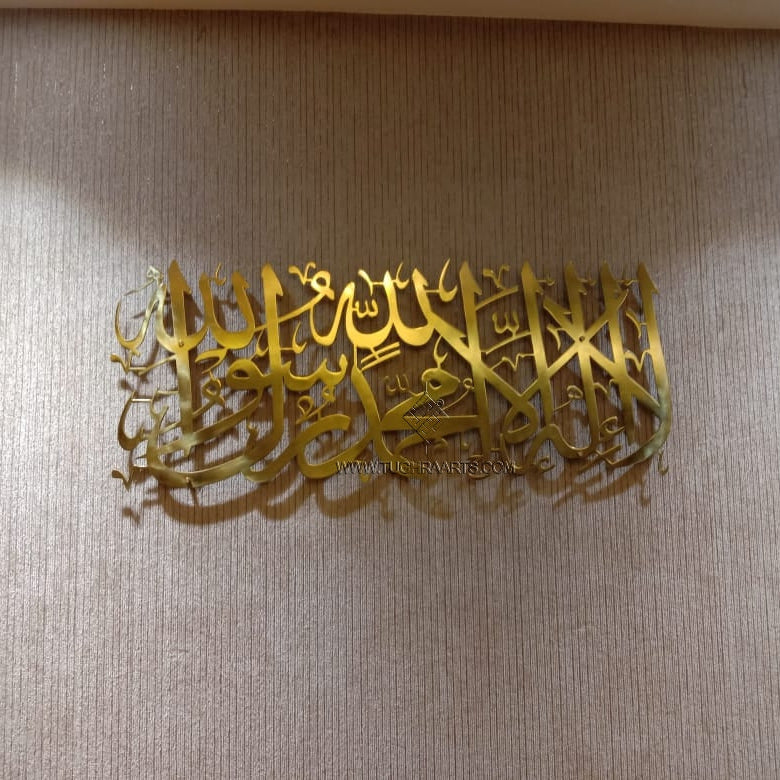 لا إله إلا الله محمد رسول الله
WWW.TUGHRAARTS.COM